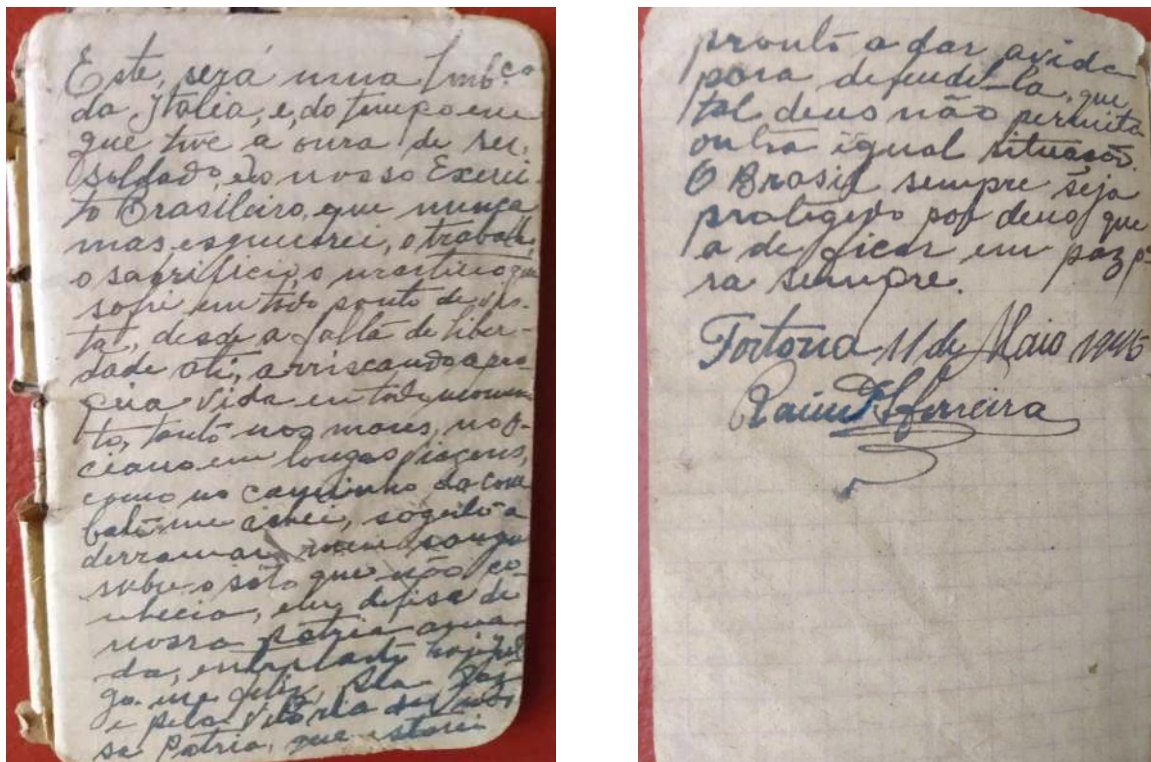 Este, será uma lmbça
da Italia, e, do tempo em
que tive a onra de ser,
Soldado, do nosso Exerci-
to Brasileiro, que nunca
mas esquecerei, o trabalho,
o sacrificio, o martirio que
sofri em todo ponto de vis-
ta, desde a falta de liber-
dade ati, arriscando a pro-
pria vida em todo momen-
to, tanto nos mares, no o-
ciano em longas viagens,
como no caminho do com
bate me achei, sogeito a
derramar meu sangue
sobre o solo que não co
nhecia, em defisa de
nossa patria ama-
da, emtretanto hoje jul
go-me feliz, pela Paz
e pela vitoria de nos
sa Patria, que estarei
pronto a dar a vida
para defendel-la, que
tal deus não permita
outra igual situação.
O Brasil sempre seja
protegido por deus, que
a de ficar em paz pa
ra sempre.
Tortona 11 de Maio 1945
Ferreira